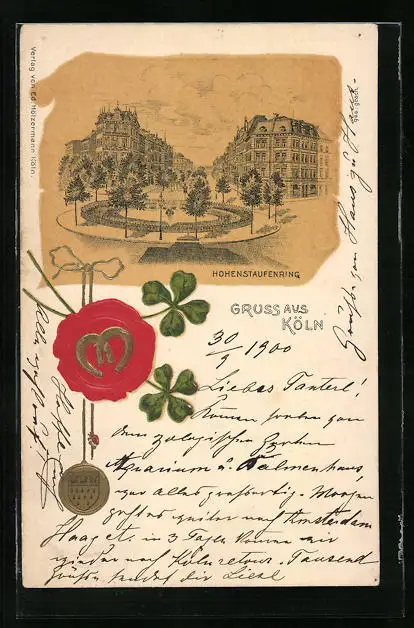 Verlag von Ed. Hölzermann, Köln.
HOHENSTAUFENRING
GRUSS AUS
KÖLN
30/9 1900
Liebes Tanterl!
Kommen soeben von
dem zologischen Garten
Aquarium u. Palmenhaus,
war alles großartig. Morgen
geht es weiter nach Amsterdam
Haag etc. in 3 Tagen kommen wir
wieder nach Köln retour. Tausend
Grüße sendet dir Liesl
Grüße von Haus zu Haus